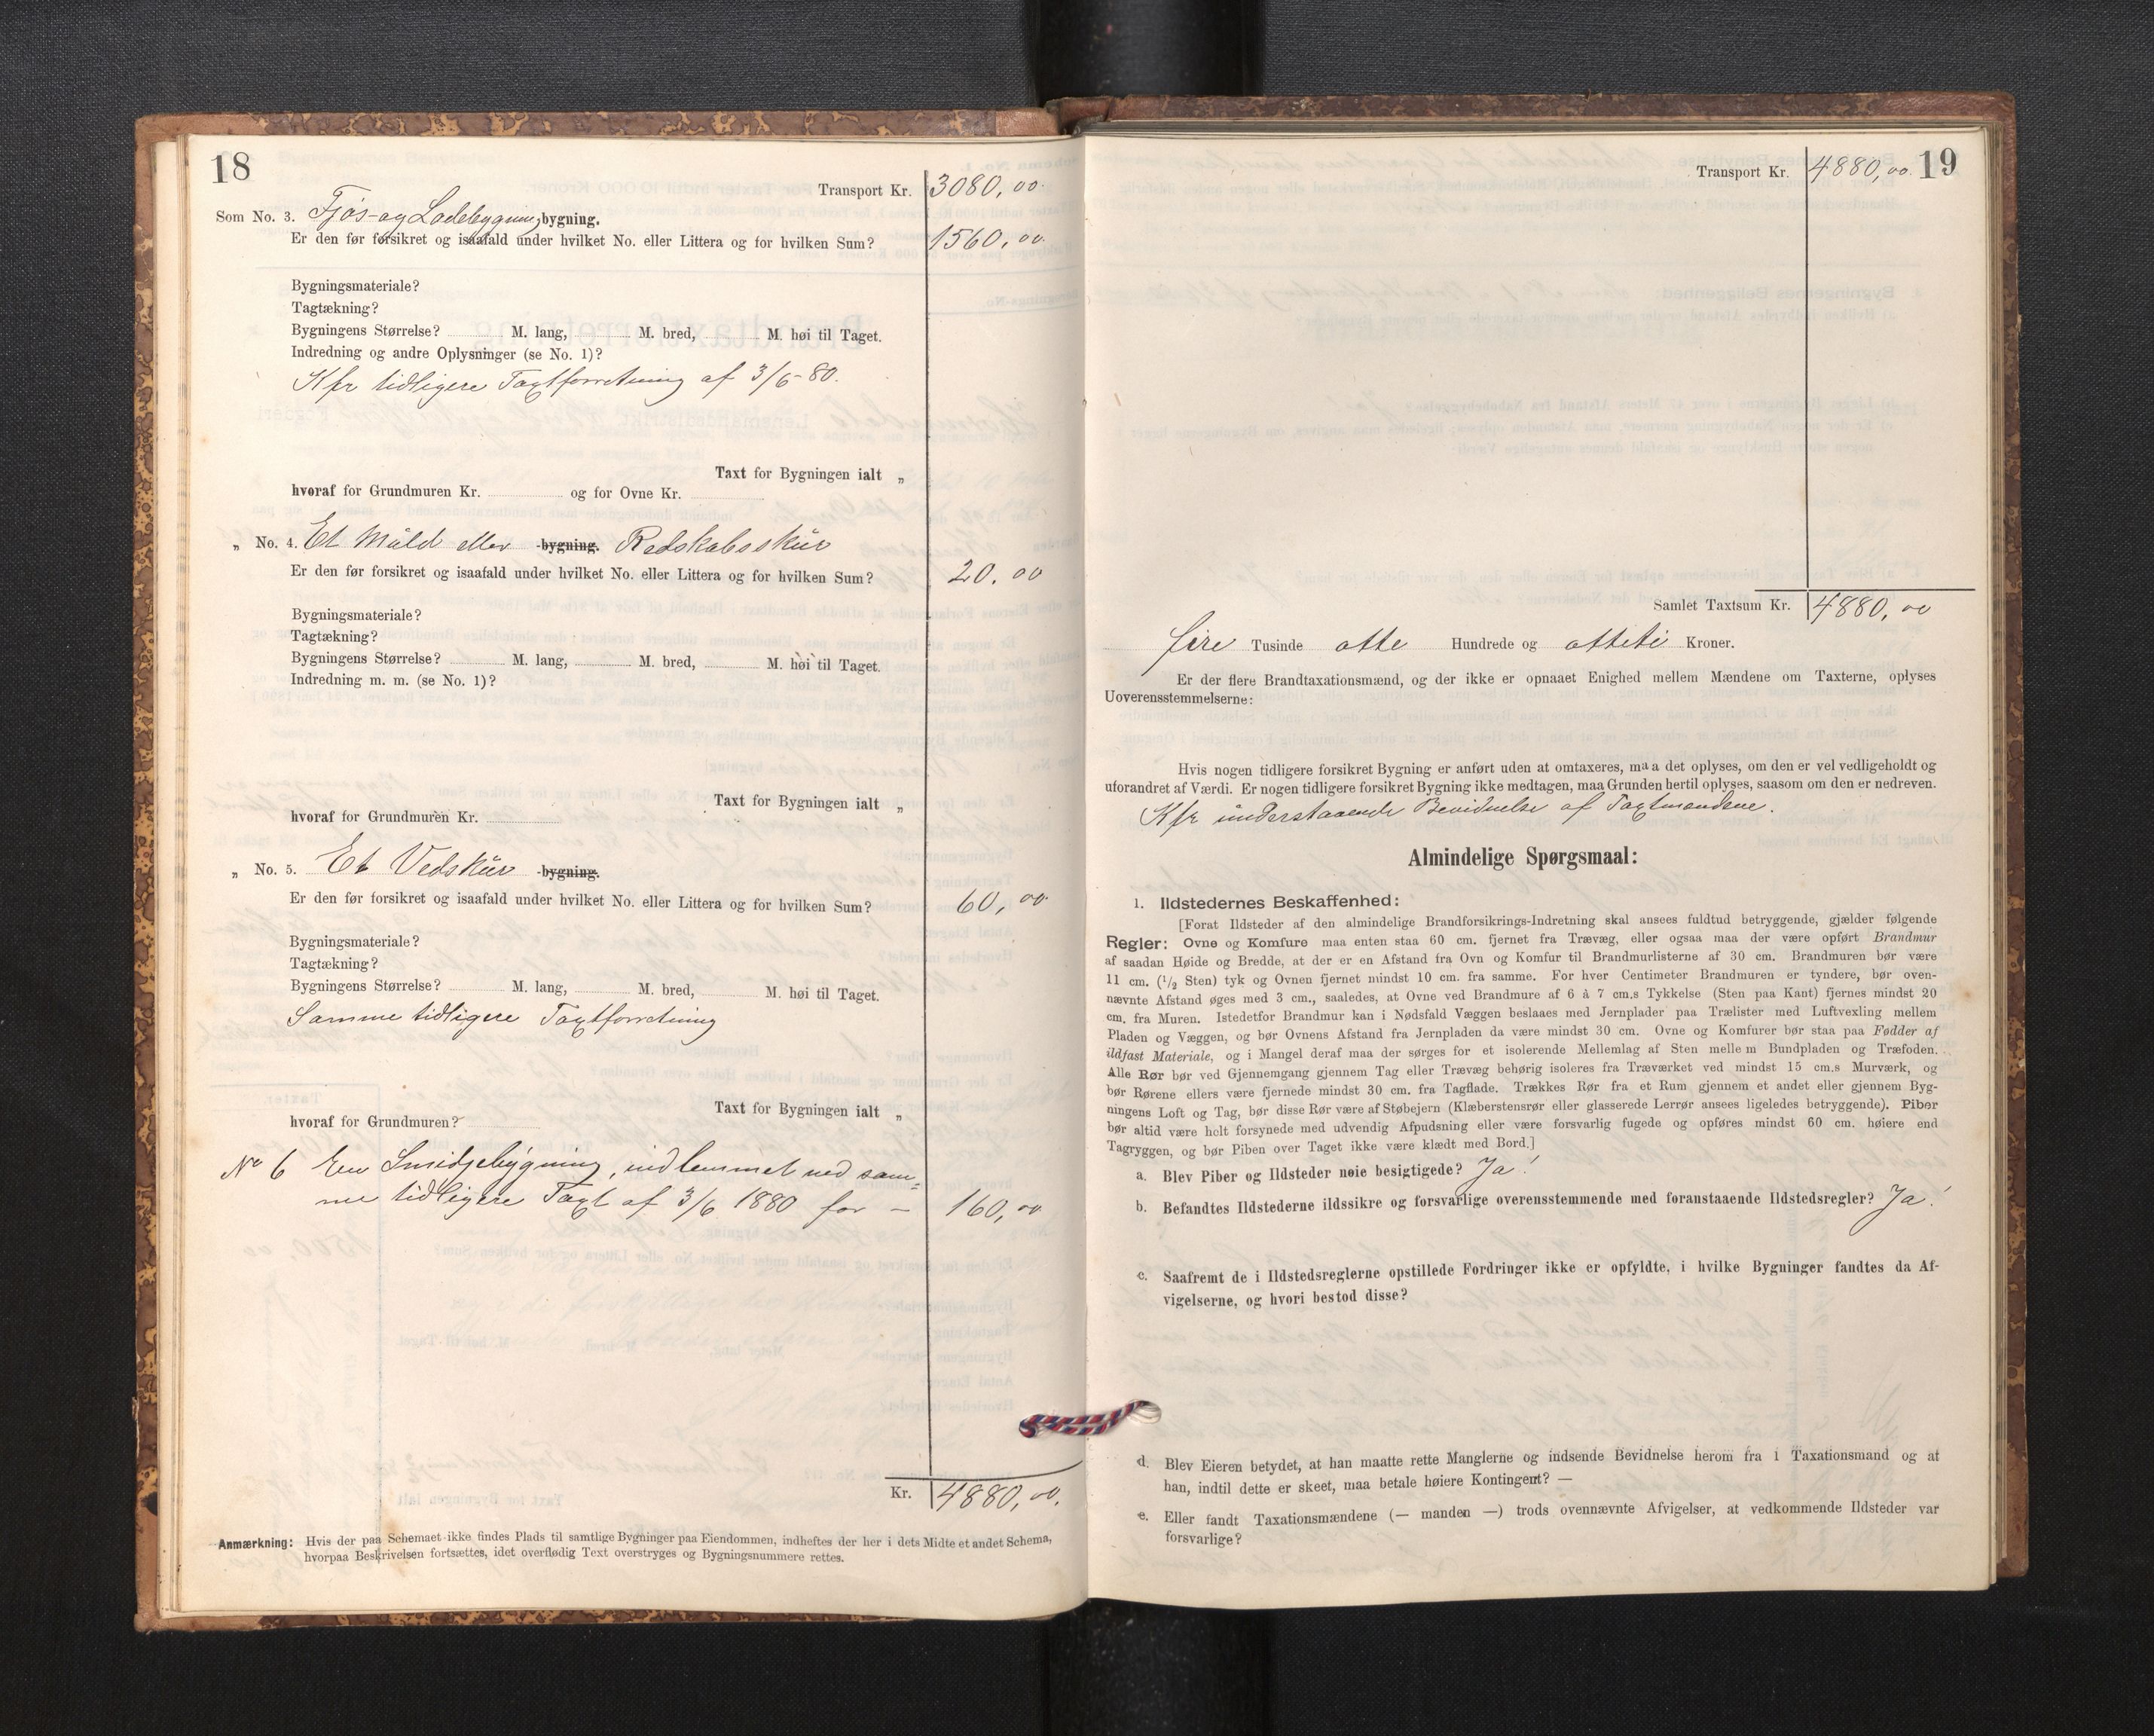 18
Transport Kr. 3080,00.
Som No. 3. Fjøs- og Ladebygning bygning.
Er den før forsikret og isaafald under hvilket No. eller Littera og for hvilken Sum? 1560,00.
Bygningsmateriale?
Tagtækning?
Bygningens Størrelse? M. lang, M. bred, M. høi til Taget.
Indredning og andre Oplysninger (se No. 1)?
Kfr tidligere Taxtforretning af 3/6-80.
Taxt for Bygningen ialt „
hvoraf for Grundmuren Kr. og for Ovne Kr.
„ No. 4. Et Måld eller bygning. Redskabsskür
Er den før forsikret og isaafald under hvilket No. eller Littera og for hvilken Sum? 20.00
Bygningsmateriale?
Tagtækning?
Bygningens Størrelse? M. lang, M. bred, M. høi til Taget.
Indredning m. m. (se No. 1)?
Taxt for Bygningen ialt „
hvoraf for Grundmuren Kr.
„ No. 5. Et Vedskür bygning.
Er den før forsikret og isaafald under hvilket No. eller Littera og for hvilken Sum? 60,00.
Bygningsmateriale?
Tagtækning?
Bygningens Størrelse? M. lang, M. bred, M. høi til Taget.
Samme tidligere Taxtforretning
Taxt for Bygningen ialt „
hvoraf for Grundmuren?
No 6 En Smidjebygning, indlemmet ved sam=
me tidligere Taxt af 3/6 1880 for – 160,00
Kr. 4880,00.
Anmærkning: Hvis der paa Schemaet ikke findes Plads til samtlige Bygninger paa Eiendommen, indheftes der her i dets Midte et andet Schema,
hvorpaa Beskrivelsen fortsættes, idet overflødig Text overstryges og Bygningsnummere rettes.
19
Transport Kr. 4880,00.
Samlet Taxtsum Kr. 4880,00
fire Tusinde otte Hundrede og otteti Kroner.
Er der flere Brandtaxationsmænd, og der ikke er opnaaet Enighed mellem Mændene om Taxterne, oplyses
Uoverensstemmelserne:
Hvis nogen tidligere forsikret Bygning er anført uden at omtaxeres, maa det oplyses, om den er vel vedligeholdt og
uforandret af Værdi. Er nogen tidligere forsikret Bygning ikke medtagen, maa Grunden hertil oplyses, saasom om den er nedreven.
Kfr ünderstaaende Bevidnelse af Taxtmændene.
Almindelige Spørgsmaal:
1. Ildstedernes Beskaffenhed:
[Forat Ildsteder af den almindelige Brandforsikrings-Indretning skal ansees fuldtud betryggende, gjælder følgende
Regler: Ovne og Komfure maa enten staa 60 cm. fjernet fra Trævæg, eller ogsaa maa der være opført Brandmur
af saadan Høide og Bredde, at der er en Afstand fra Ovn og Komfur til Brandmurlisterne af 30 cm. Brandmuren bør være
11 cm. (1/2 Sten) tyk og Ovnen fjernet mindst 10 cm. fra samme. For hver Centimeter Brandmuren er tyndere, bør oven-
nævnte Afstand øges med 3 cm., saaledes, at Ovne ved Brandmure af 6 à 7 cm.s Tykkelse (Sten paa Kant) fjernes mindst 20
cm. fra Muren. Istedetfor Brandmur kan i Nødsfald Væggen beslaaes med Jernplader paa Trælister med Luftvexling mellem
Pladen og Væggen, og bør Ovnens Afstand fra Jernpladen da være mindst 30 cm. Ovne og Komfurer bør staa paa Fødder af
ildfast Materiale, og i Mangel deraf maa der sørges for et isolerende Mellemlag af Sten mellem Bundpladen og Træfoden.
Alle Rør bør ved Gjennemgang gjennem Tag eller Trævæg behørig isoleres fra Træværket ved mindst 15 cm.s Murværk, og
bør Rørene ellers være fjernede mindst 30 cm. fra Tagflade. Trækkes Rør fra et Rum gjennem et andet eller gjennem Byg-
ningens Loft og Tag, bør disse Rør være af Støbejern (Klæberstensrør eller glasserede Lerrør ansees ligeledes betryggende). Piber
bør altid være helt forsynede med udvendig Afpudsning eller være forsvarlig fugede og opføres mindst 60 cm. høiere end
Tagryggen, og bør Piben over Taget ikke være klædt med Bord.]
a. Blev Piber og Ildsteder nøie besigtigede? Ja!
b. Befandtes Ildstederne ildssikre og forsvarlige overensstemmende med foranstaaende Ildstedsregler? Ja!
c. Saafremt de i Ildstedsreglerne opstillede Fordringer ikke er opfyldte, i hvilke Bygninger fandtes da Af-
vigelserne, og hvori bestod disse?
d. Blev Eieren betydet, at han maatte rette Manglerne og indsende Bevidnelse herom fra 1 Taxationsmand og at
han, indtil dette er skeet, maa betale høiere Kontingent? —
e. Eller fandt Taxationsmændene (— manden —) trods ovennævnte Afvigelser, at vedkommende Ildsteder var
forsvarlige?